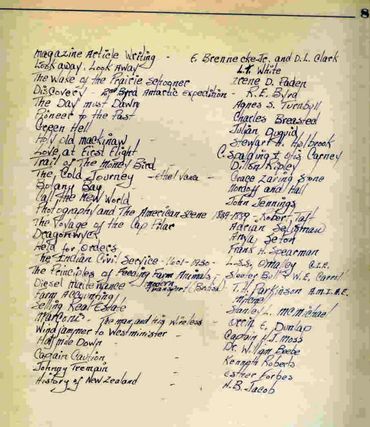 8
Magazine Article Writing - E. Brennecke Jr. and D.L. Clark
Look away, Look Away L.T. White
The Wake of the Prairie Schooner Irene D. Paden
Discovery - 2nd Byrd Antarctic expedition - R.E. Byrd
The Day must Dawn Agnes S. Turnbull
Pioneer to the Past Charles Breasted
Green Hell Julian Duguid
Holy old mackinaw Stewart H. Holbrook
Love at First Flight C. Spalding & Otis Carney
Trail of The Money Bird Dillon Ripley
The Cold Journey - Grace Zaring Stone
Botany Bay - Nordoff and Hall
Call the New World - John Jennings
Photography and The American Scene 1839-1889 - Robert Taft
The Voyage of the Cap Pilar Adrian Seligman
Dragonwyck Anya Seton
Held for Orders - Frank H. Spearman
The Indian Civil Service - 1601-1930 - L.S.S. Omalley C.I.E.
The Principles of Feeding Farm Animals - Sleeter Bull & W.E. Carroll
Diesel maintenance - modern Transport (British) T.H. Parkinson A.M.I.A.E.
Farm Accounting
Selling Real Estate Stanley L. McMichael
Marconi - The man and his Wireless - Orrin E. Dunlap
Windjammer to Westminster - Captain H.J. Moss
Half mile Down - Dr. William Beebe
Captain Caution - Kenneth Roberts
Johnny Tremain - Esther Forbes
History of New Zealand - H.B. Jacob